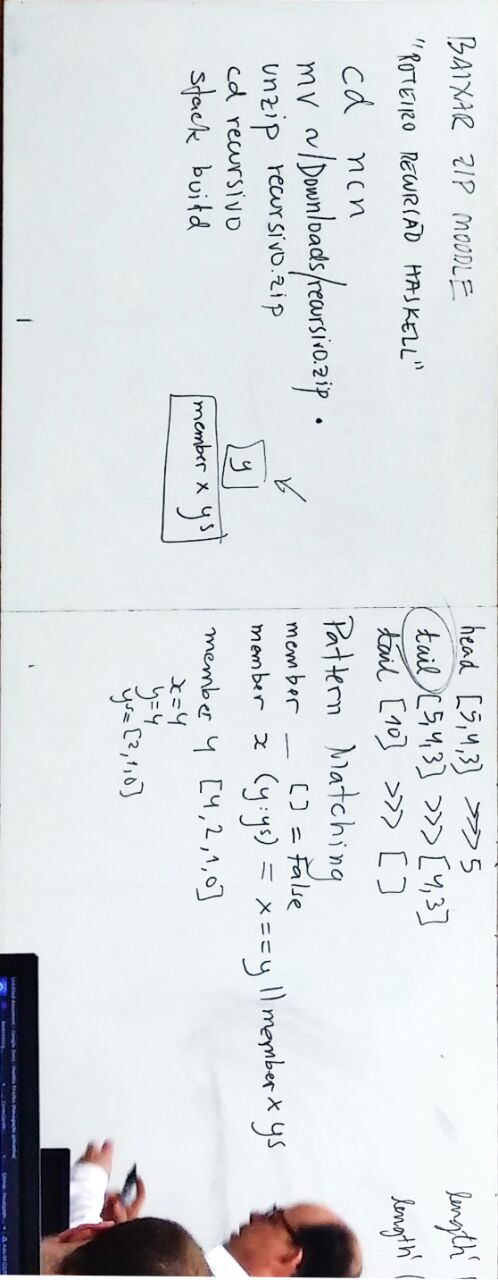 BAIXAR ZIP MOODLE
"ROTEIRO RECURSÃO HASKELL"
cd ncn
mv ~/Downloads/recursivo.zip .
unzip recursivo.zip
cd recursivo
stack build
y
member x ys
head [5,4,3] >>> 5
tail [5,4,3] >>> [4,3]
tail [10] >>> []
Pattern Matching
member _ [] = False
member x (y:ys) = x == y || member x ys
member 4 [4,2,1,0]
x=4
y=4
ys=[2,1,0]
length'
length'